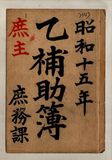 昭和十五年
乙補助簿
庶務課
庶主